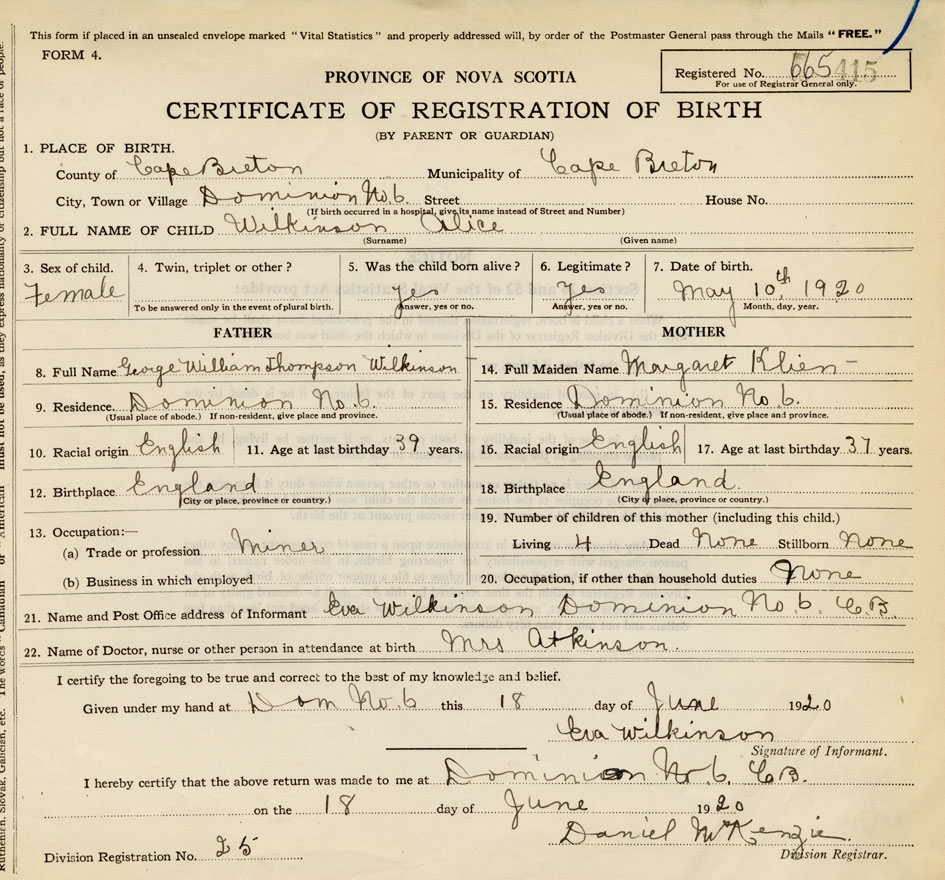 This form if placed in an unsealed envelope marked "Vital Statistics" and properly addressed will, by order of the Postmaster General pass through the Mails "FREE."
FORM 4.
PROVINCE OF NOVA SCOTIA
Registered No. 665 415
For use of Registrar General only.
CERTIFICATE OF REGISTRATION OF BIRTH
(BY PARENT OR GUARDIAN)
1. PLACE OF BIRTH.
County of Cape Breton Municipality of Cape Breton
City, Town or Village Dominion No. 6. Street House No.
(If birth occurred in a hospital, give its name instead of Street and Number)
2. FULL NAME OF CHILD Wilkinson Alice
(Surname) (Given name)
3. Sex of child. 4. Twin, triplet or other? 5. Was the child born alive? 6. Legitimate? 7. Date of birth.
Female Yes Yes May 10th, 1920
To be answered only in the event of plural birth. Answer, yes or no. Answer, yes or no. Month, day, year.
FATHER MOTHER
8. Full Name George William Thompson Wilkinson 14. Full Maiden Name Margaret Klien
9. Residence. Dominion No. 6. 15. Residence Dominion No. 6.
(Usual place of abode.) If non-resident, give place and province. (Usual place of abode.) If non-resident, give place and province.
10. Racial origin English 11. Age at last birthday 39 years. 16. Racial origin English 17. Age at last birthday 37 years.
12. Birthplace England 18. Birthplace England.
(City or place, province or country.) (City or place, province or country.)
13. Occupation:— 19. Number of children of this mother (including this child.)
(a) Trade or profession Miner Living 4 Dead None Stillborn None
(b) Business in which employed 20. Occupation, if other than household duties None
21. Name and Post Office address of Informant Eva Wilkinson Dominion No. 6. C.B.
22. Name of Doctor, nurse or other person in attendance at birth Mrs Atkinson.
I certify the foregoing to be true and correct to the best of my knowledge and belief.
Given under my hand at Dom No. 6 this 18 day of June 1920
Eva Wilkinson
Signature of Informant.
I hereby certify that the above return was made to me at Dominion No. 6. C.B.
on the 18 day of June 1920
Daniel McKenzie.
Division Registration No. 25 Division Registrar.